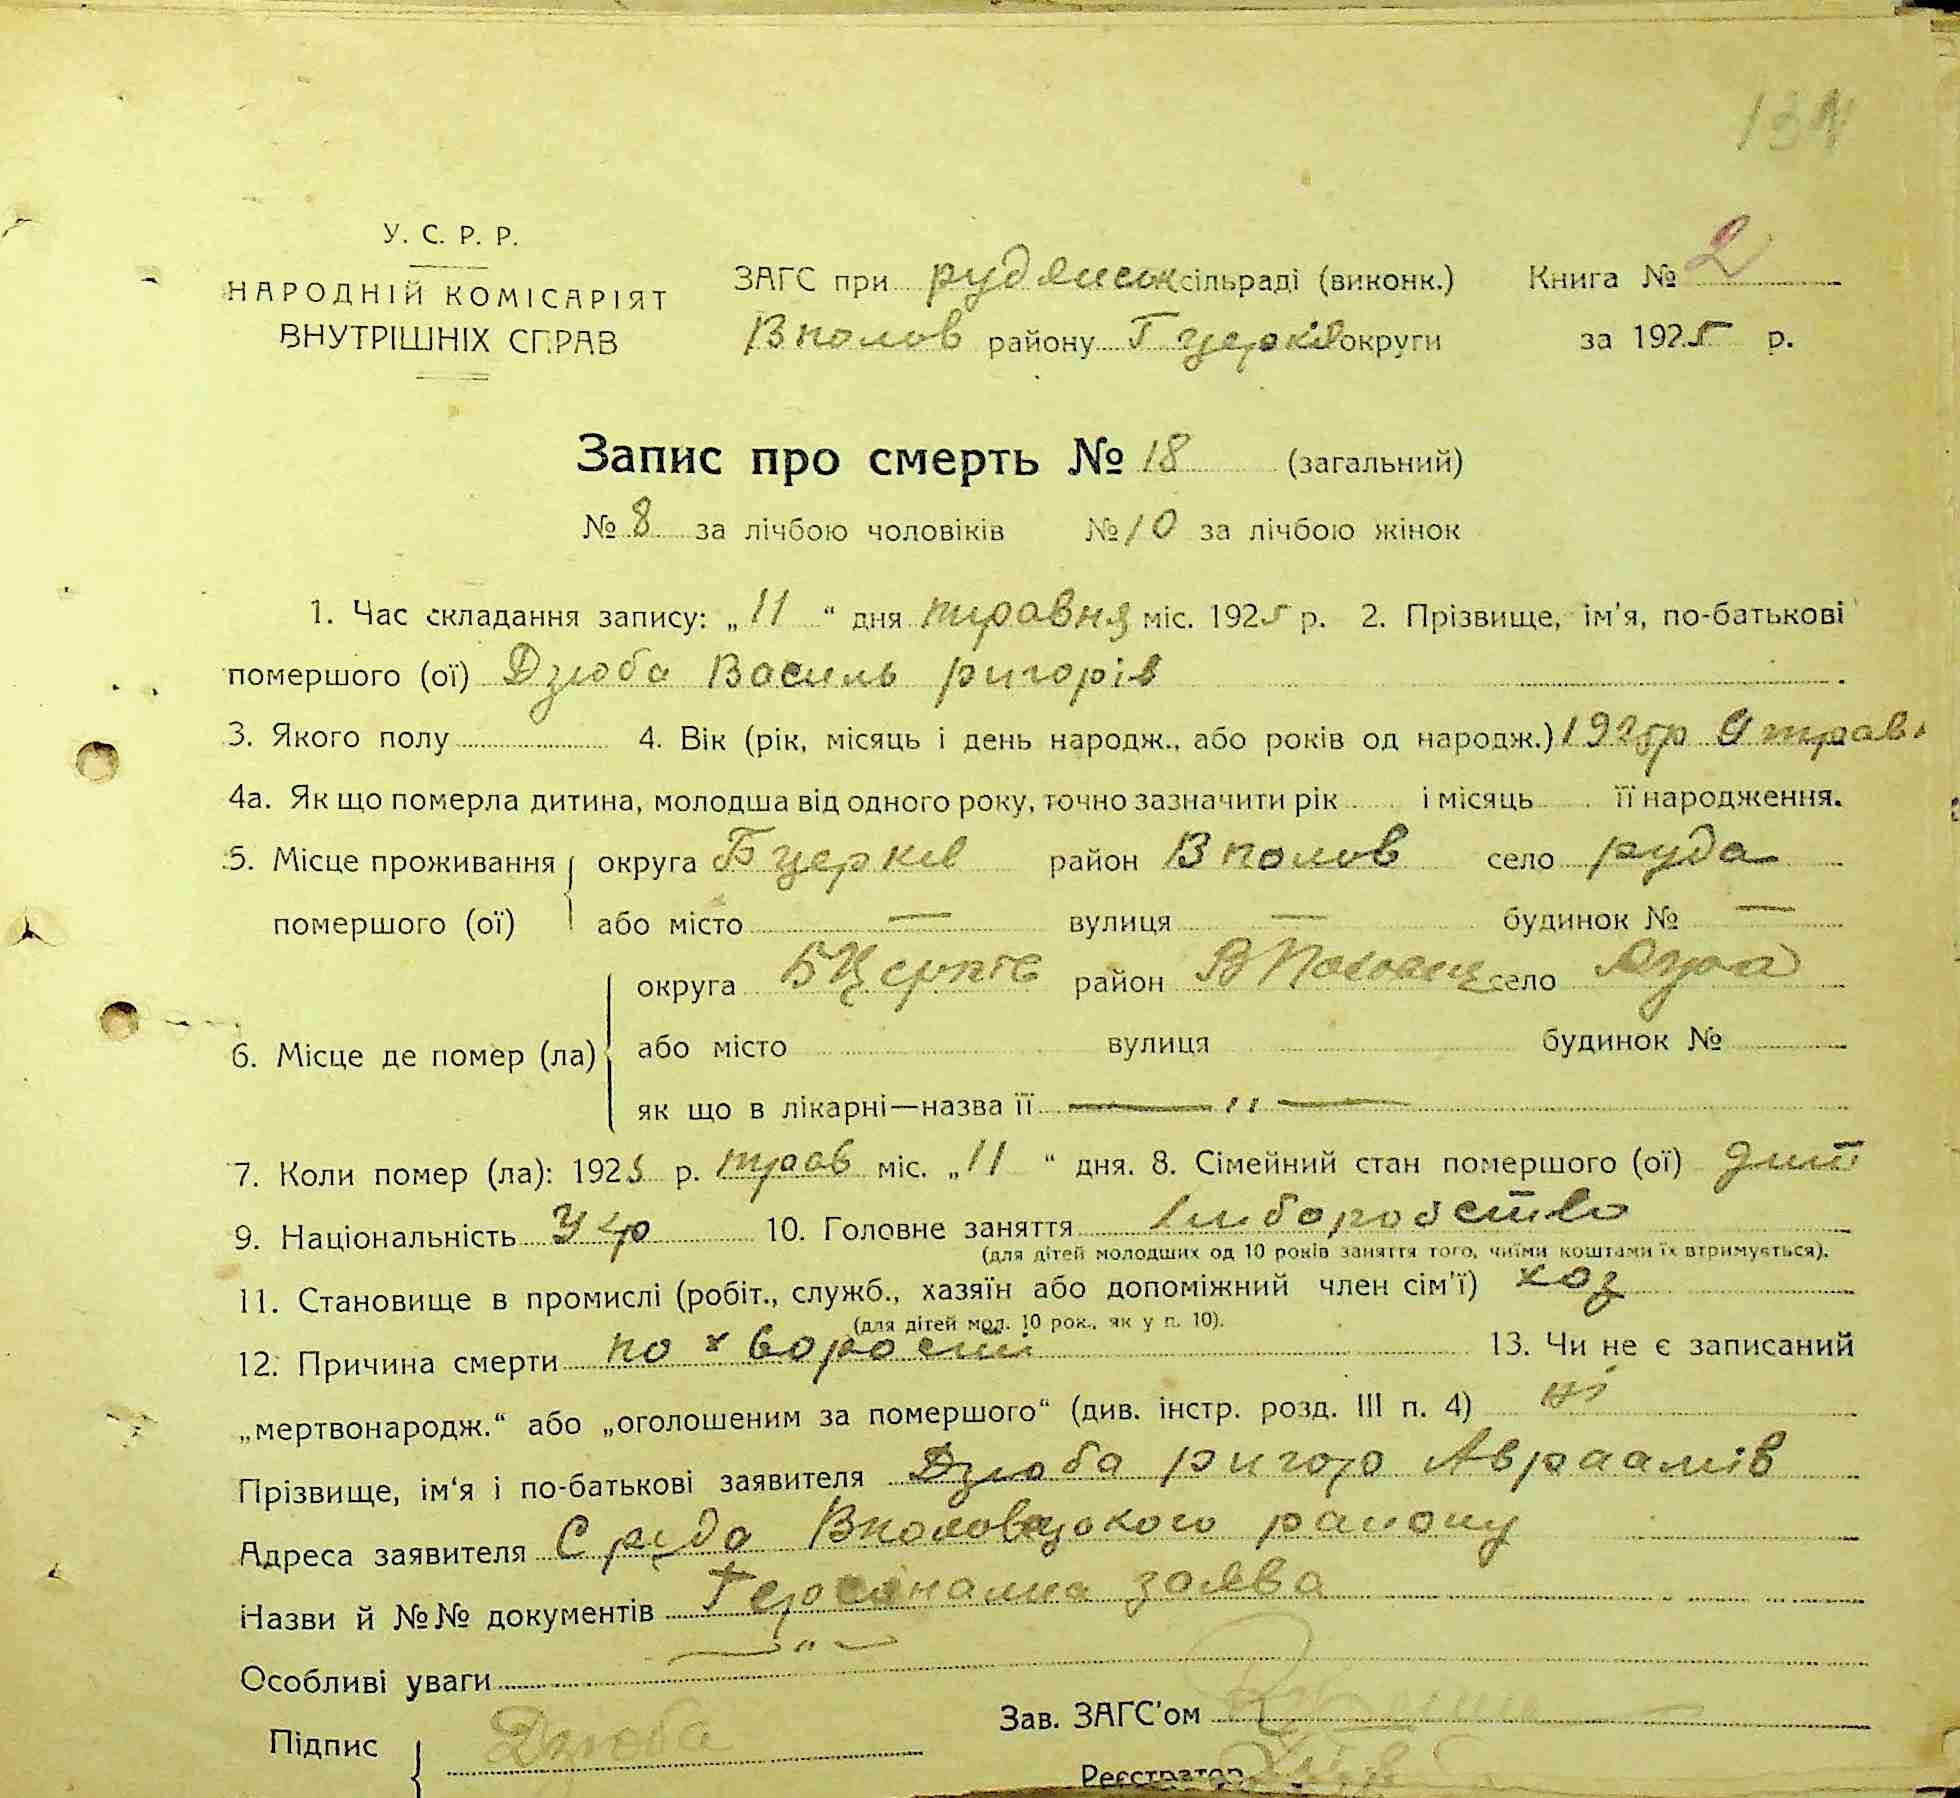 У. С. Р. Р.
НАРОДНІЙ КОМІСАРІЯТ
ВНУТРІШНІХ СПРАВ
ЗАГС при рудянськ сільраді (виконк.)
Вполов району Бцерків округи
Книга № 2
за 1925 р.
Запис про смерть № 18 (загальний)
№ 8 за лічбою чоловіків № 10 за лічбою жінок
1. Час складання запису: „11“ дня травня міс. 1925 р. 2. Прізвище, ім'я, по-батькові
помершого (ої) Дзюба Василь ригорів
3. Якого полу 4. Вік (рік, місяць і день народж., або років од народж.) 1925р 9 трав
4а. Як що померла дитина, молодша від одного року, точно зазначити рік і місяць її народження.
5. Місце проживання округа Бцерків район Вполов село руда
помершого (ої) або місто — вулиця — будинок № —
округа БЦерків район ВПоловец село
6. Місце де помер (ла) або місто вулиця будинок №
як що в лікарні—назва її — „ —
7. Коли помер (ла): 1925 р. трав міс. „11“ дня. 8. Сімейний стан помершого (ої) дит
9. Національність Укр 10. Головне заняття хлиборобство
(для дітей молодших од 10 років заняття того, чиїми коштами їх втримується).
11. Становище в промислі (робіт., служб., хазяїн або допоміжний член сім'ї) хоз
(для дітей мол. 10 рок., як у п. 10).
12. Причина смерти по хворости 13. Чи не є записаний
„мертвонародж.“ або „оголошеним за помершого“ (див. інстр. розд. III п. 4) ні
Прізвище, ім'я і по-батькові заявителя Дзюба ригор Авраамів
Адреса заявителя С руда Вполовецокого району
Назви й №№ документів заява
Особливі уваги — „ —
Підпис Дзюба
Зав. ЗАГС'ом
Реєстратор